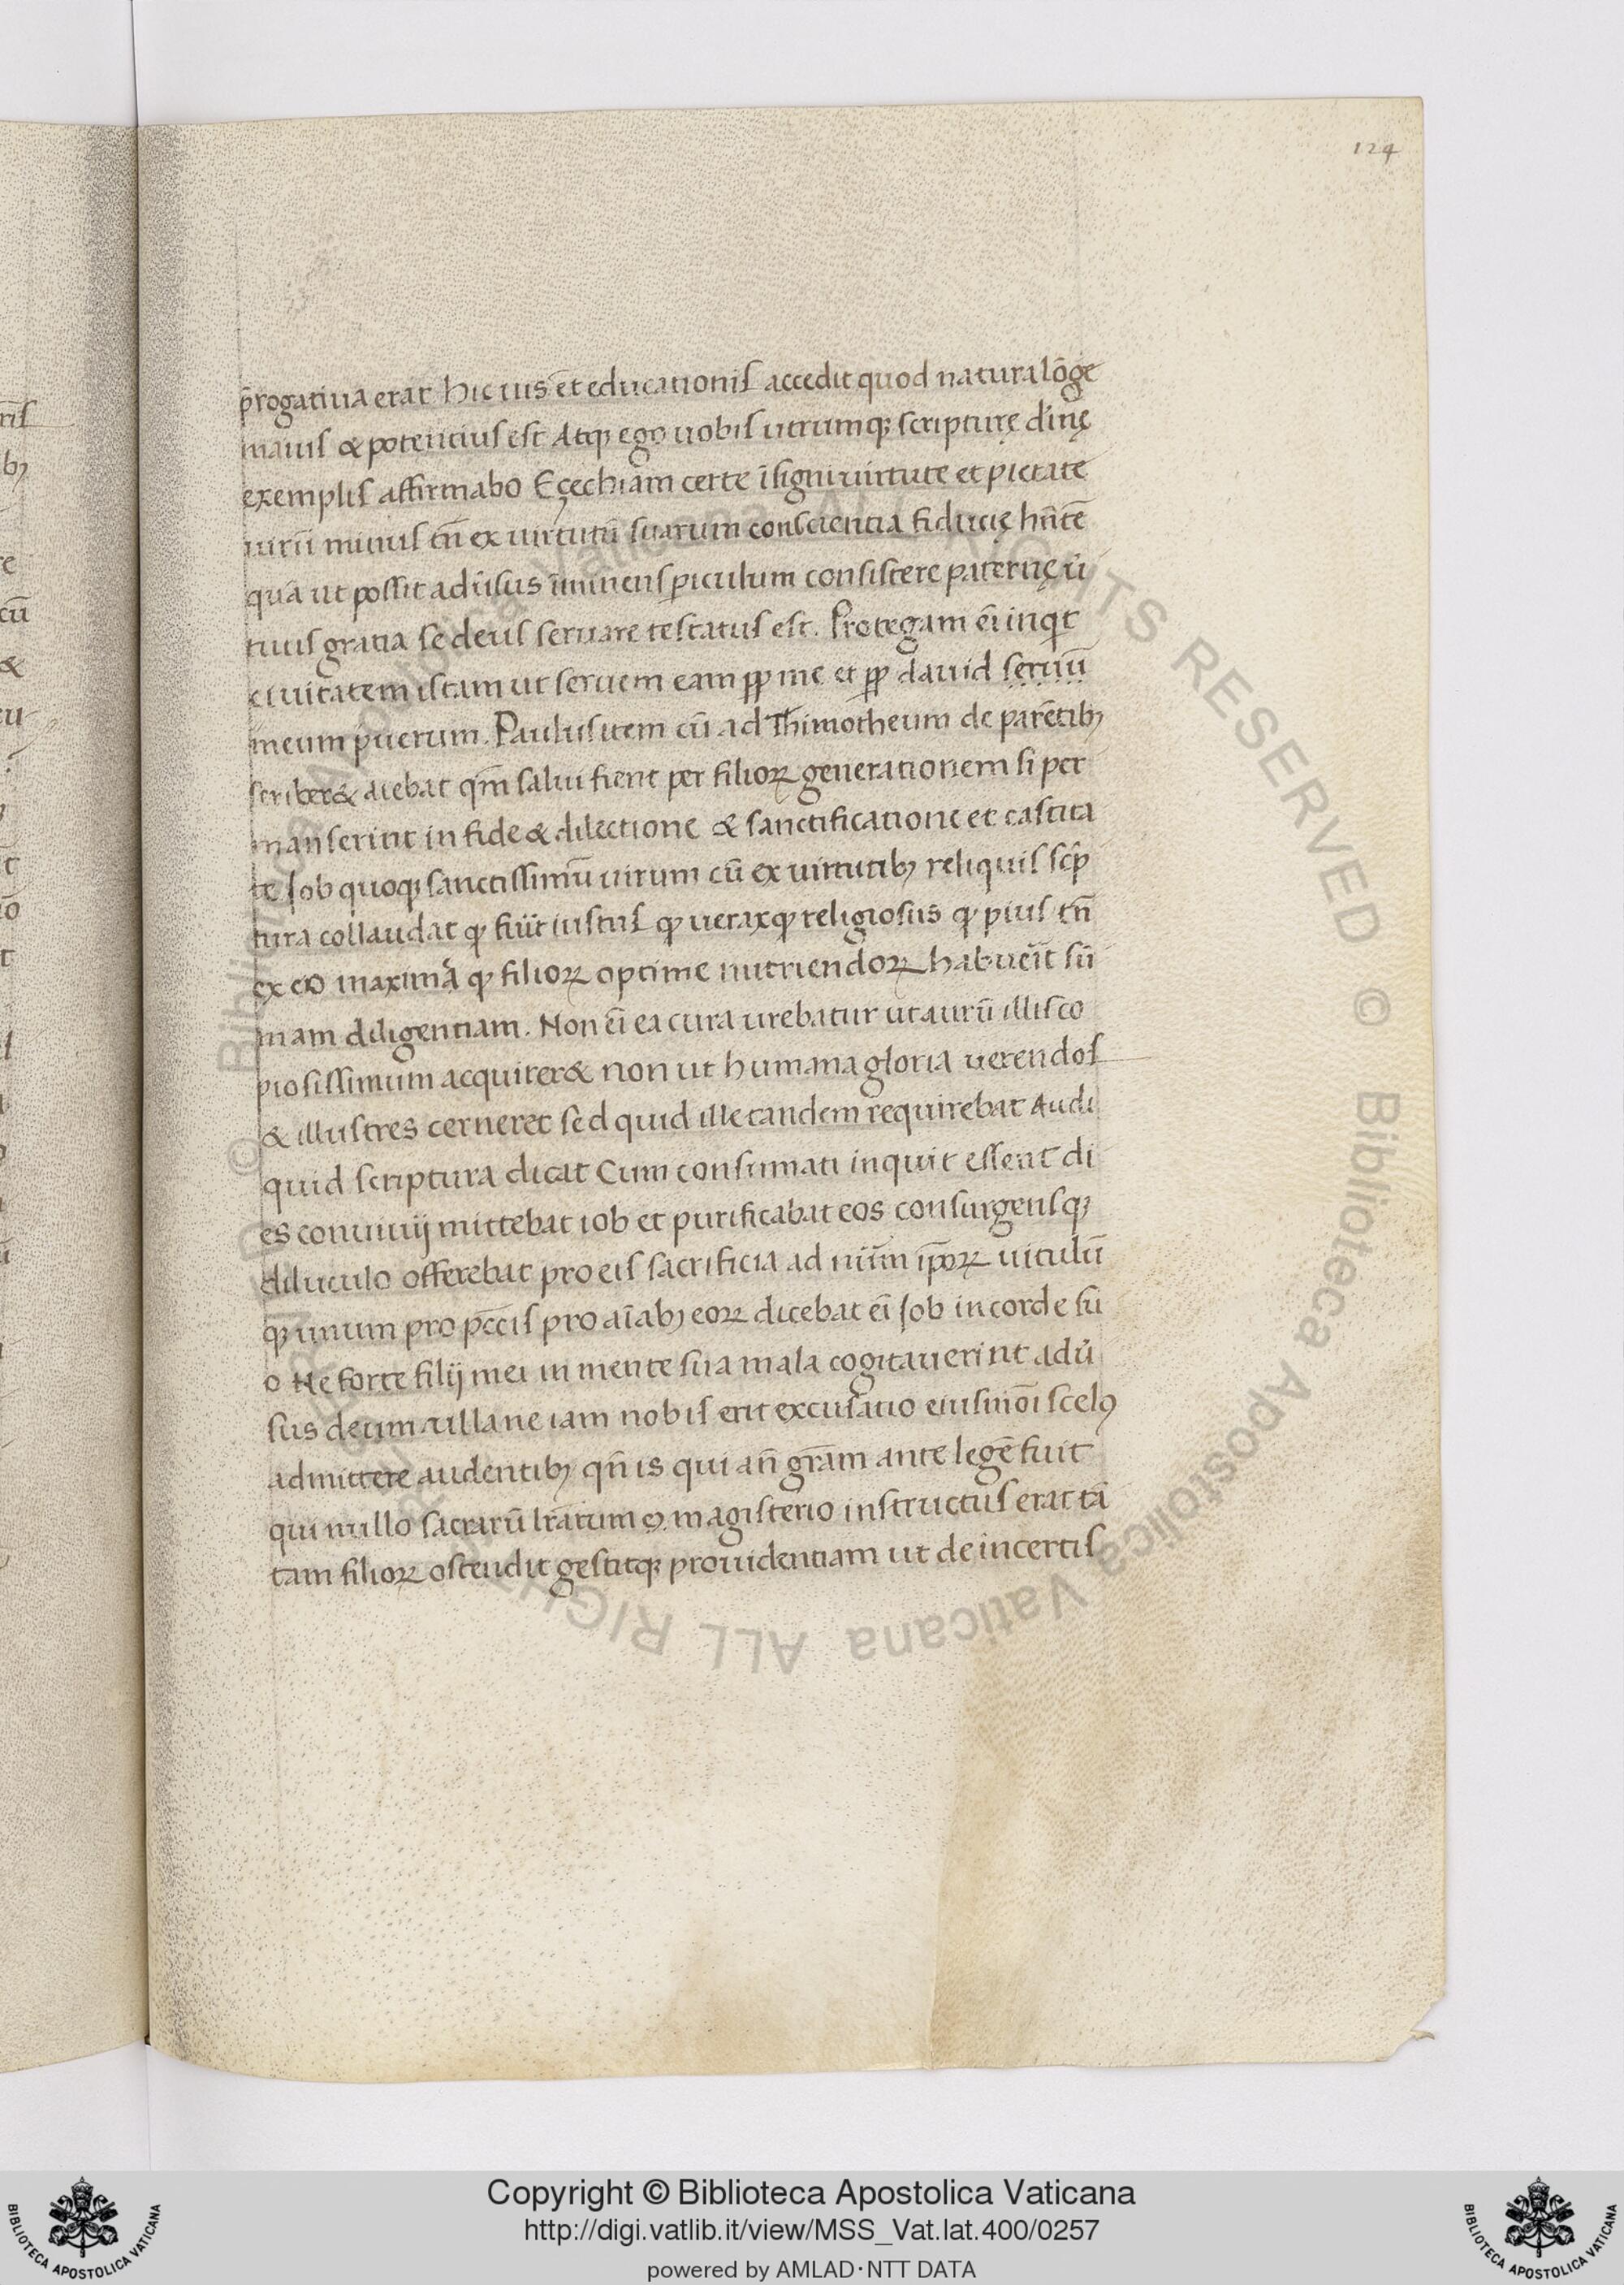 124
p̄rogatiua erat hic ius et educationis accedit quod natura lōge
maius & potentius est Atq; ego uobis utrumq; scripturę diuinę
exemplis affirmabo Eçechiam certe īsigni uirtute et pietate
uirū minus tn̄ ex uirtutū suarum conscientia fiducię hn̄te
quā ut possit aduersus īminens periculum consistere paternę uir
tutis gratia se deus seruare testatus est. Protegam ei inqt
ciuitatem istam ut seruem eam pp me et pp dauid seruū
meum puerum. Paulus item cū ad Thimotheum de parētib;
scriber& aiebat qm̄ salui fient per filioꝝ generationem si per
manserint in fide & dilectione & sanctificatione et castita
te Iob quoq; sanctissimū uirum cū ex uirtutib; reliquis scp̄
tura collaudat q fuit iustus q uerax q religiosus q pius tn̄
ex eo maximā q filioꝝ optime nutriendoꝝ habuerit sū
mam diligentiam. Non ei ea cura urebatur ut aurū illis co
piosissimum acquirer& non ut humana gloria uerendos
& illustres cerneret sed quid ille tandem requirebat Audi
quid scriptura dicat Cum consumati inquit essent di
es conuiuij mittebat iob et purificabat eos consurgensq;
diluculo offerebat pro eis sacrificia ad nūm ip̄oꝝ uitulū
q; unum pro pcc̄is pro aīab; eoꝝ dicebat ei Iob in corde su
o Ne forte filij mei in mente sua mala cogitauerint aduer
sus deum ullane iam nobis erit excusatio eiusmōi scelꝰ
admittere audentib; qn̄ is qui an̄ grām ante legē fuit
qui nullo sacrarū lr̄arum magisterio instructus erat tā
tam filioꝝ ostendit gestitq; prouidentiam ut de incertis
Copyright © Biblioteca Apostolica Vaticana
http://digi.vatlib.it/view/MSS_Vat.lat.400/0257
powered by AMLAD·NTT DATA